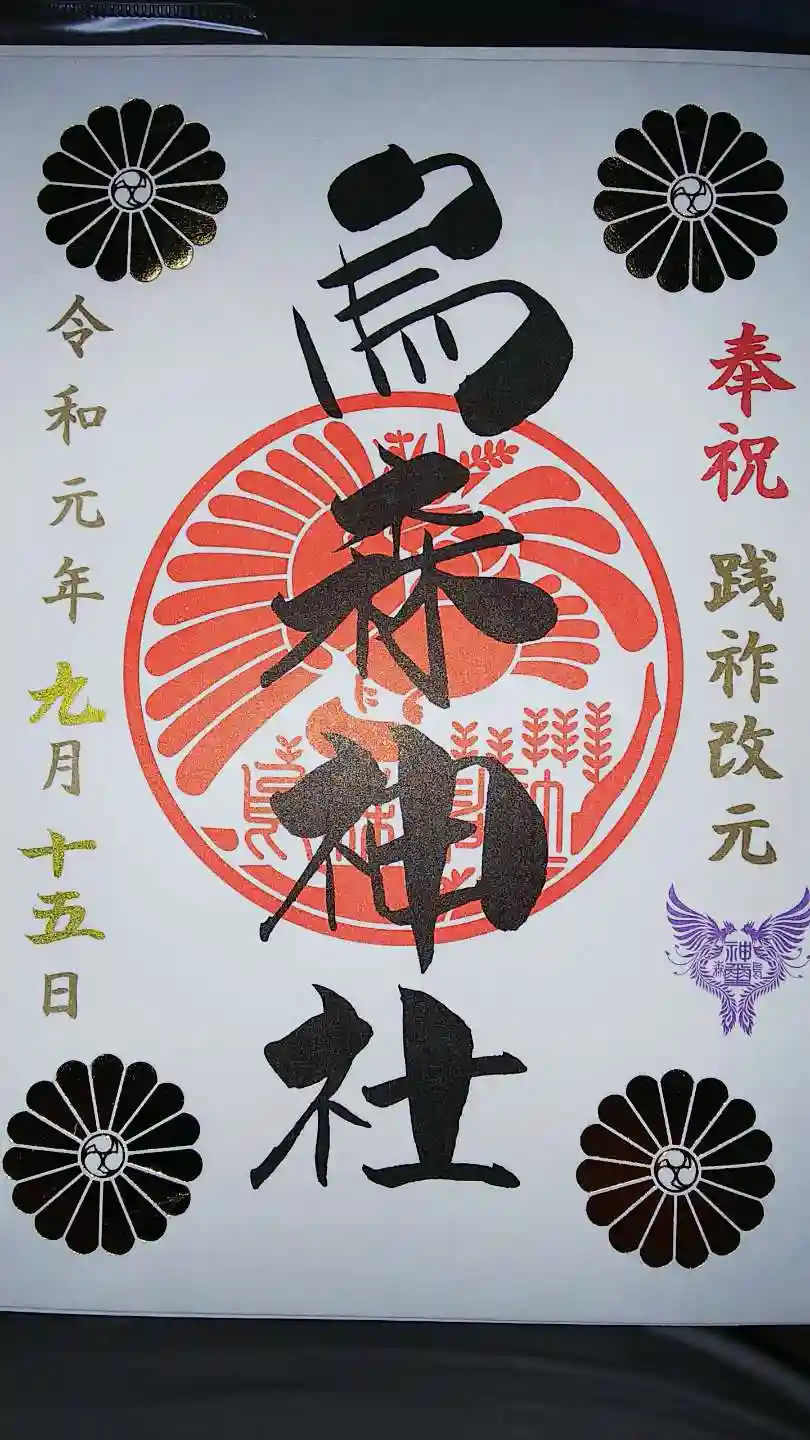 奉祝 践祚改元
烏森神社
令和元年九月十五日